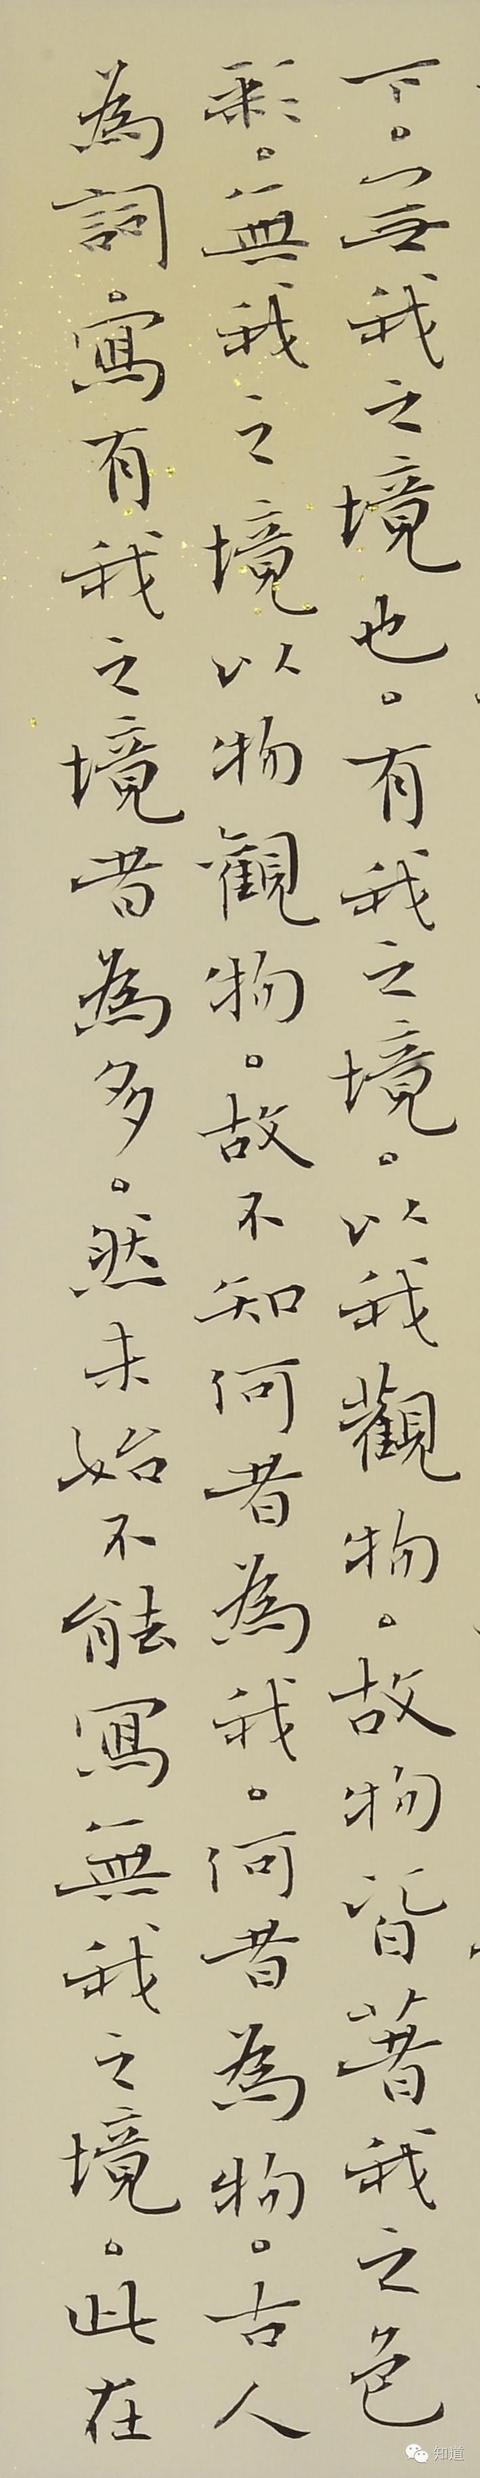 下。無我之境也。有我之境。以我觀物。故物皆著我之色
彩。無我之境以物觀物。故不知何者為我。何者為物。古人
為詞。寫有我之境者為多。然未始不能寫無我之境。此在
知道